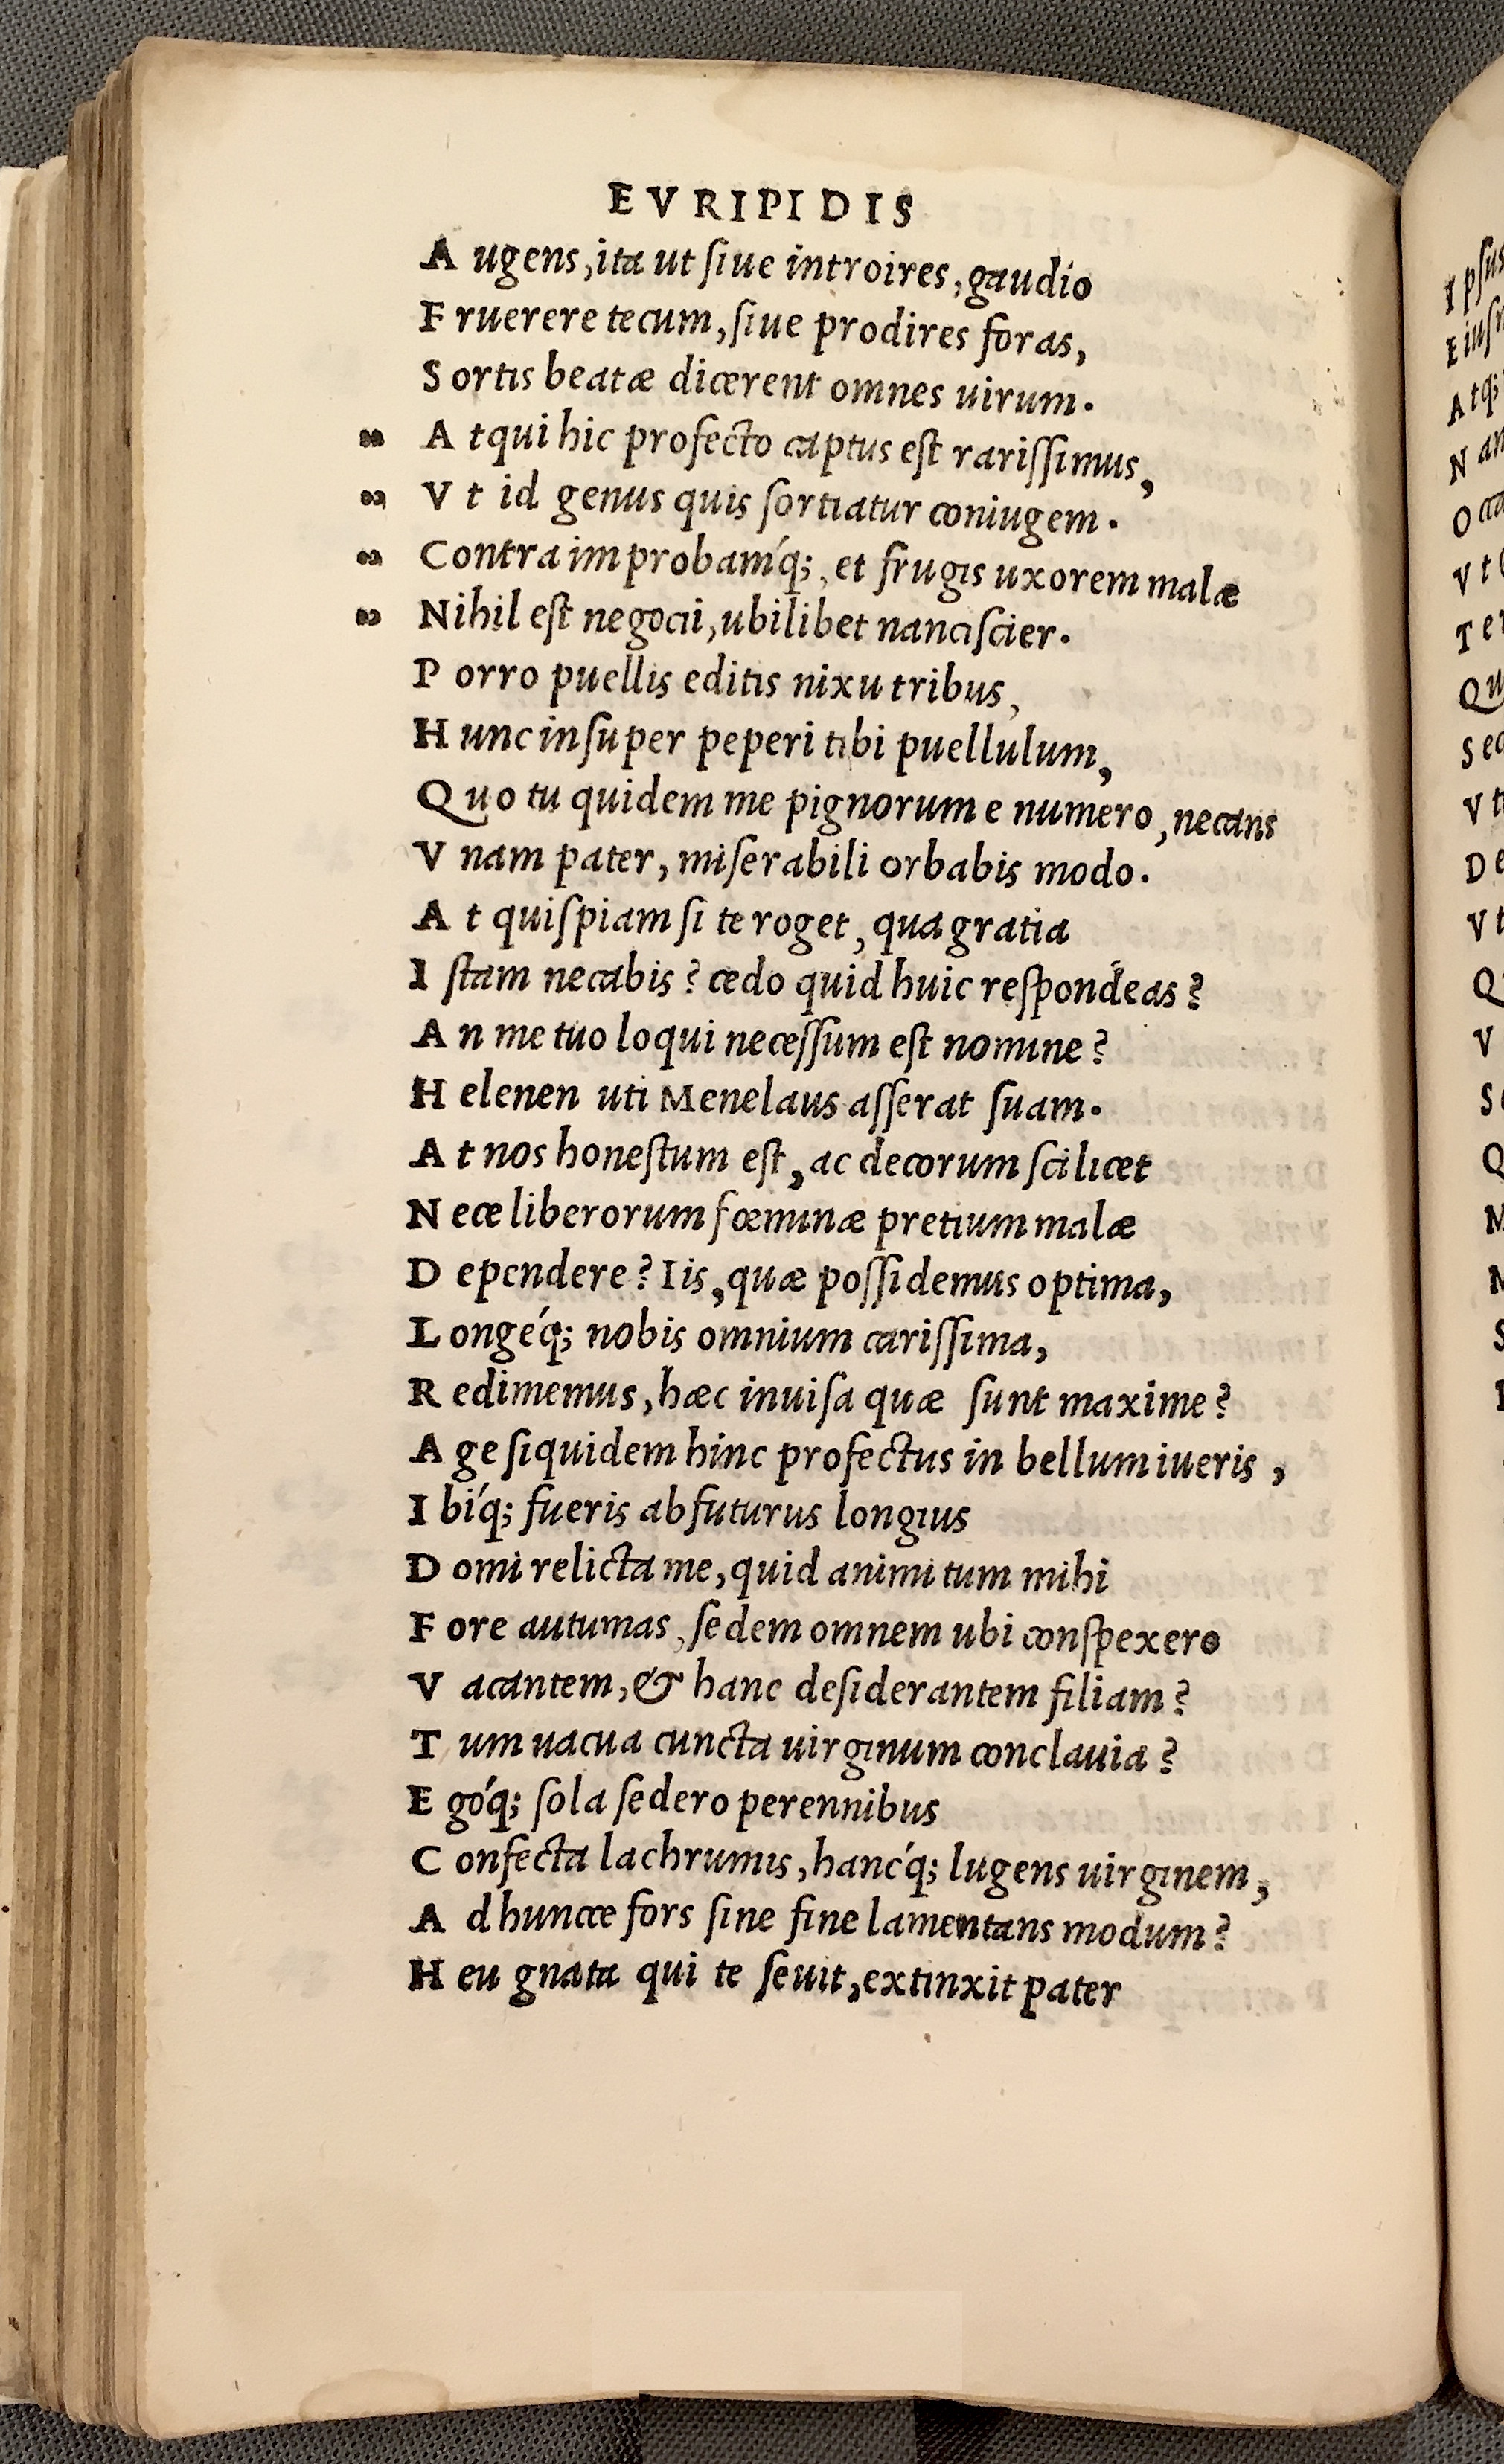 EVRIPIDIS
Augens, ita ut ſiue introires, gaudio
Fruerere tecum, ſiue prodires foras,
Sortis beatæ dicerent omnes uirum.
„ Atqui hic profecto captus eſt rariſſimus,
„ Vt id genus quis ſortiatur coniugem.
„ Contra improbamq́;, et frugis uxorem malæ
„ Nihil eſt negocii, ubilibet nanciſcier.
Porro puellis editis nixu tribus,
Hunc inſuper peperi tibi puellulum,
Quo tu quidem me pignorum e numero, necans
Vnam pater, miſerabili orbabis modo.
At quiſpiam ſi te roget, qua gratia
Iſtam necabis? cedo quid huic reſpondeas?
An me tuo loqui neceſſum eſt nomine?
Helenen uti Menelaus aſſerat ſuam.
At nos honeſtum eſt, ac decorum ſcilicet
Nece liberorum fœminæ pretium malæ
Dependere? Iis, quæ poſſidemus optima,
Longeq́; nobis omnium cariſſima,
Redimemus, hæc inuiſa quæ ſunt maxime?
Age ſiquidem hinc profectus in bellum iueris,
Ibiq́; fueris abfuturus longius
Domi relicta me, quid animi tum mihi
Fore autumas, ſedem omnem ubi conſpexero
Vacantem, & hanc deſiderantem filiam?
Tum uacua cuncta uirginum conclauia?
Egoq́; ſola ſedero perennibus
Confecta lachrumis, hancq́; lugens uirginem,
Ad huncce fors ſine fine lamentans modum?
Heu gnata qui te ſeuit, extinxit pater
Ipſus